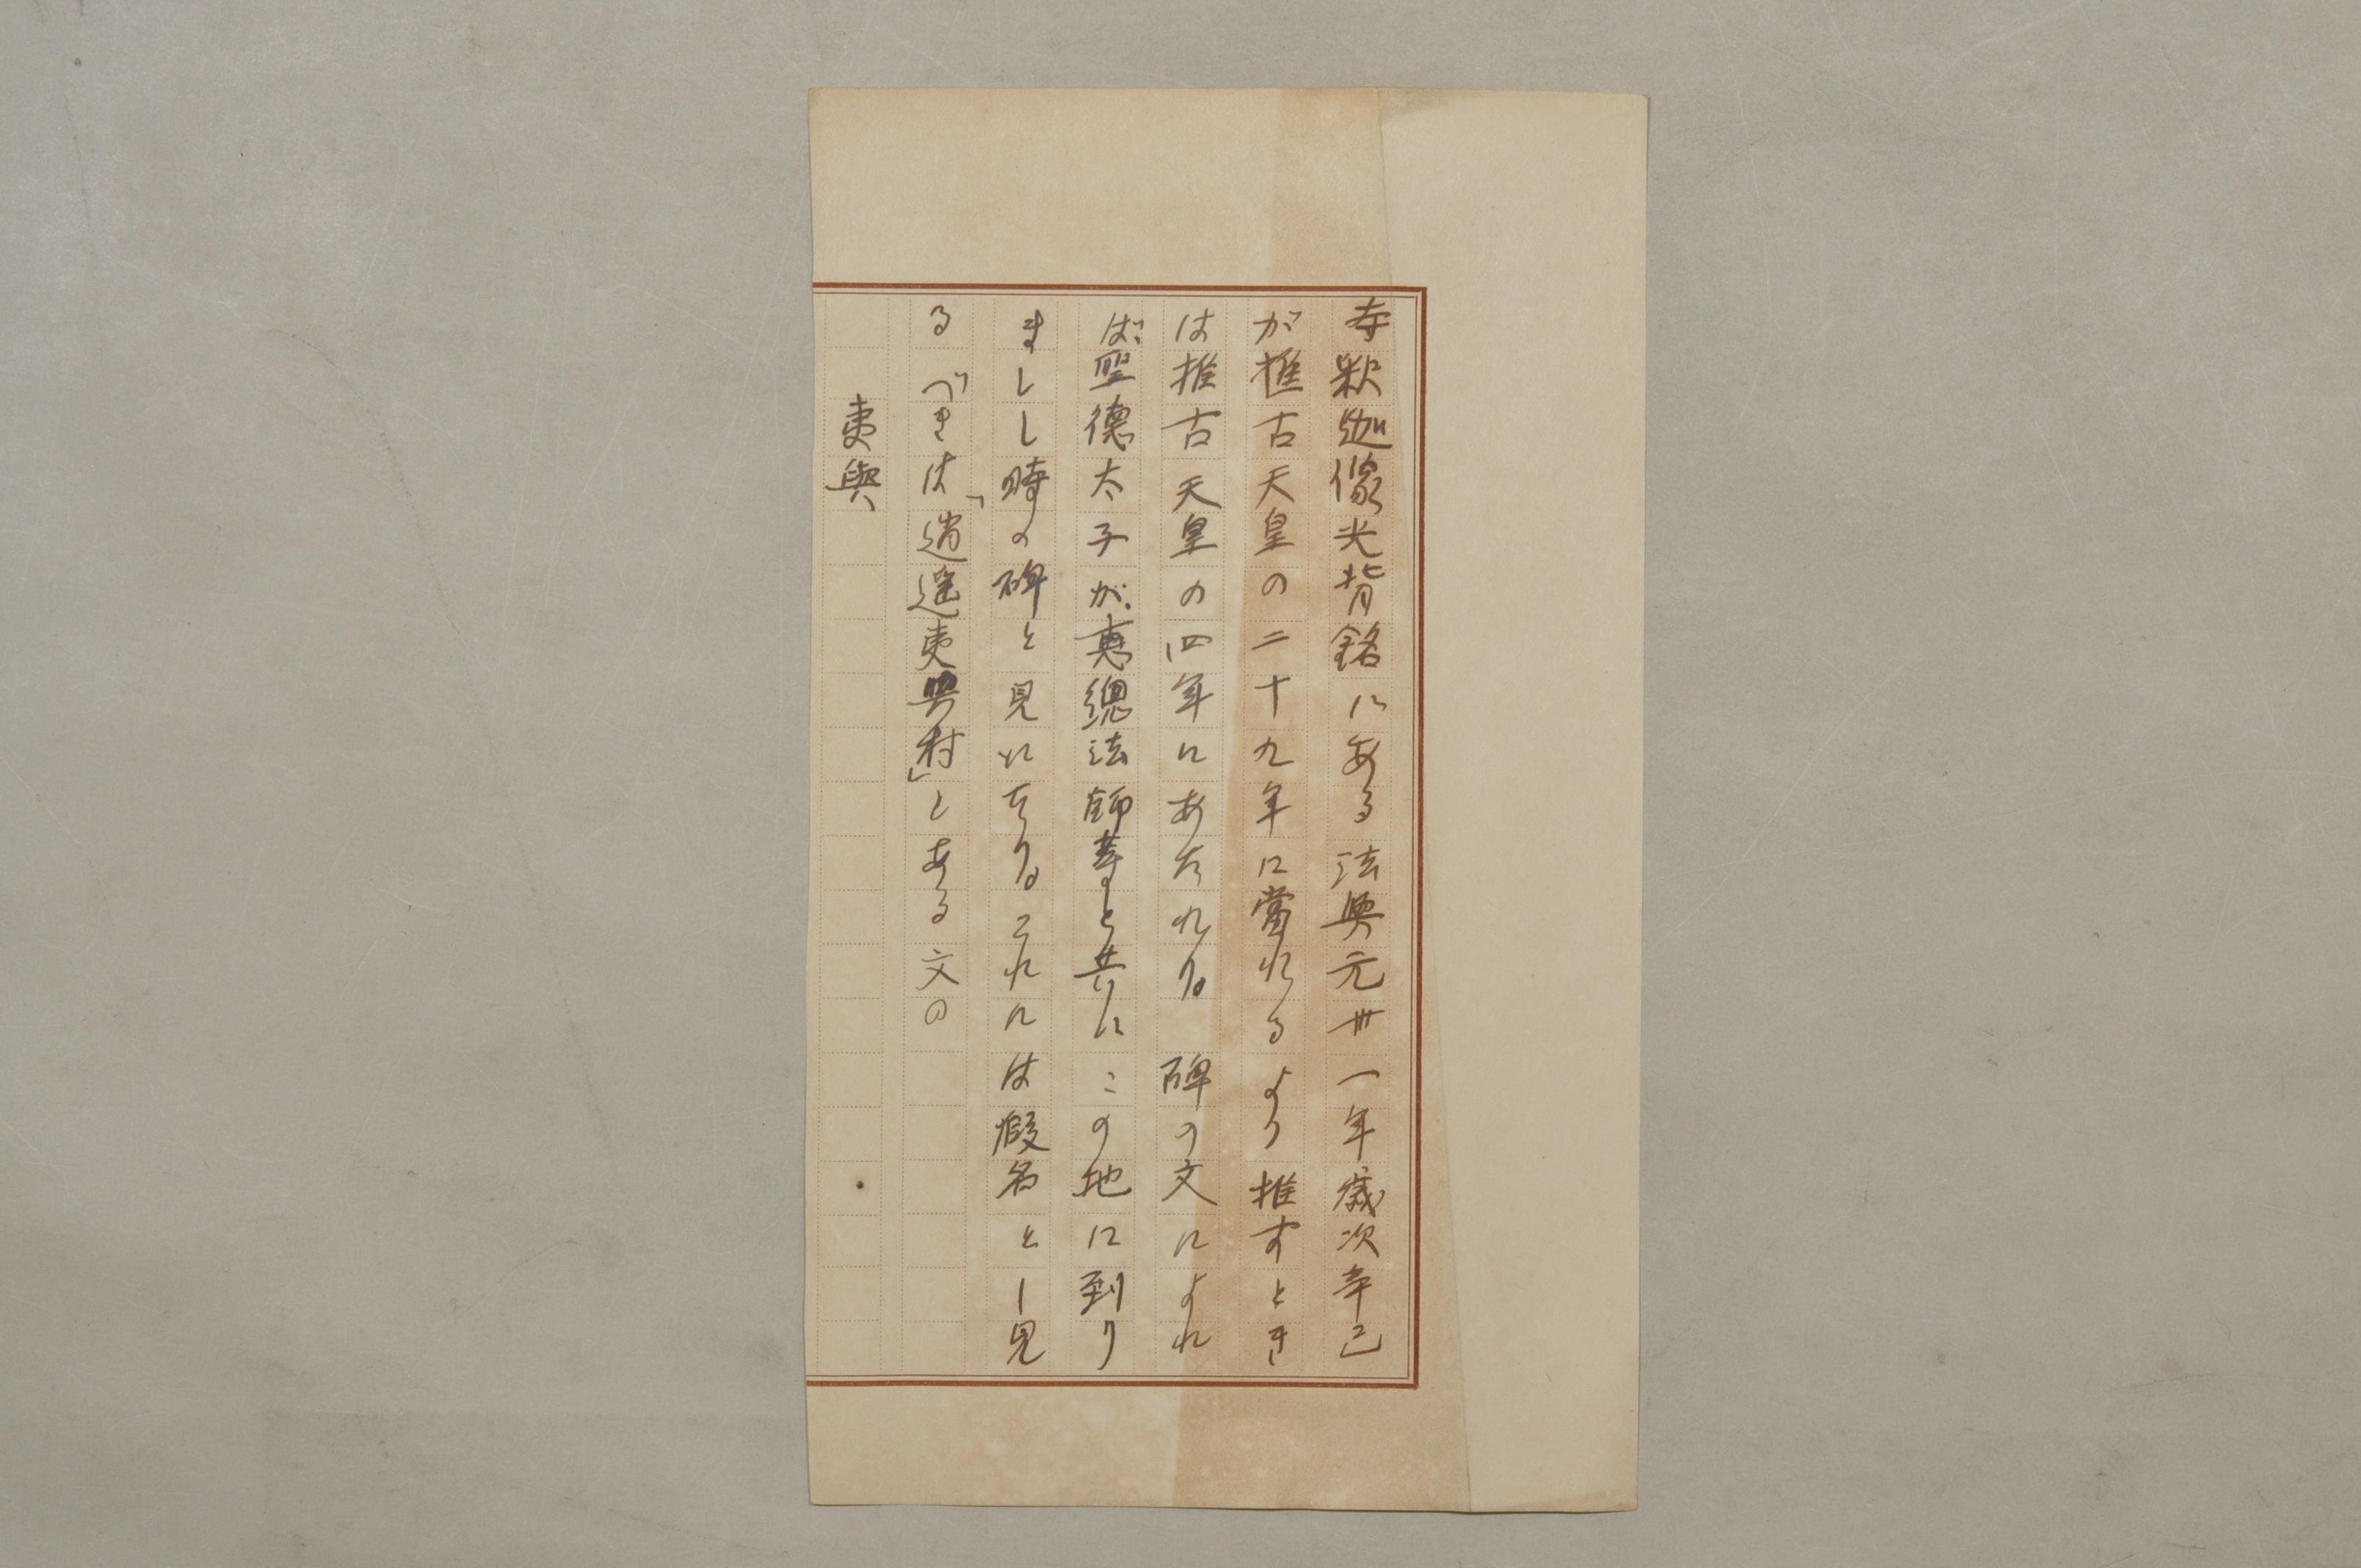 寺釈迦像光背銘にある法興元卅一年歳次辛巳
が推古天皇の二十九年に當れるより推すとき
は推古天皇の四年にあたれり。碑の文によれ
ば、聖徳太子が、恵總法師等と共にこの地に到り
ましし時の碑と見ゆるなり。これには假名とし見
るべきは「逍遥夷與村」とある文の
夷與